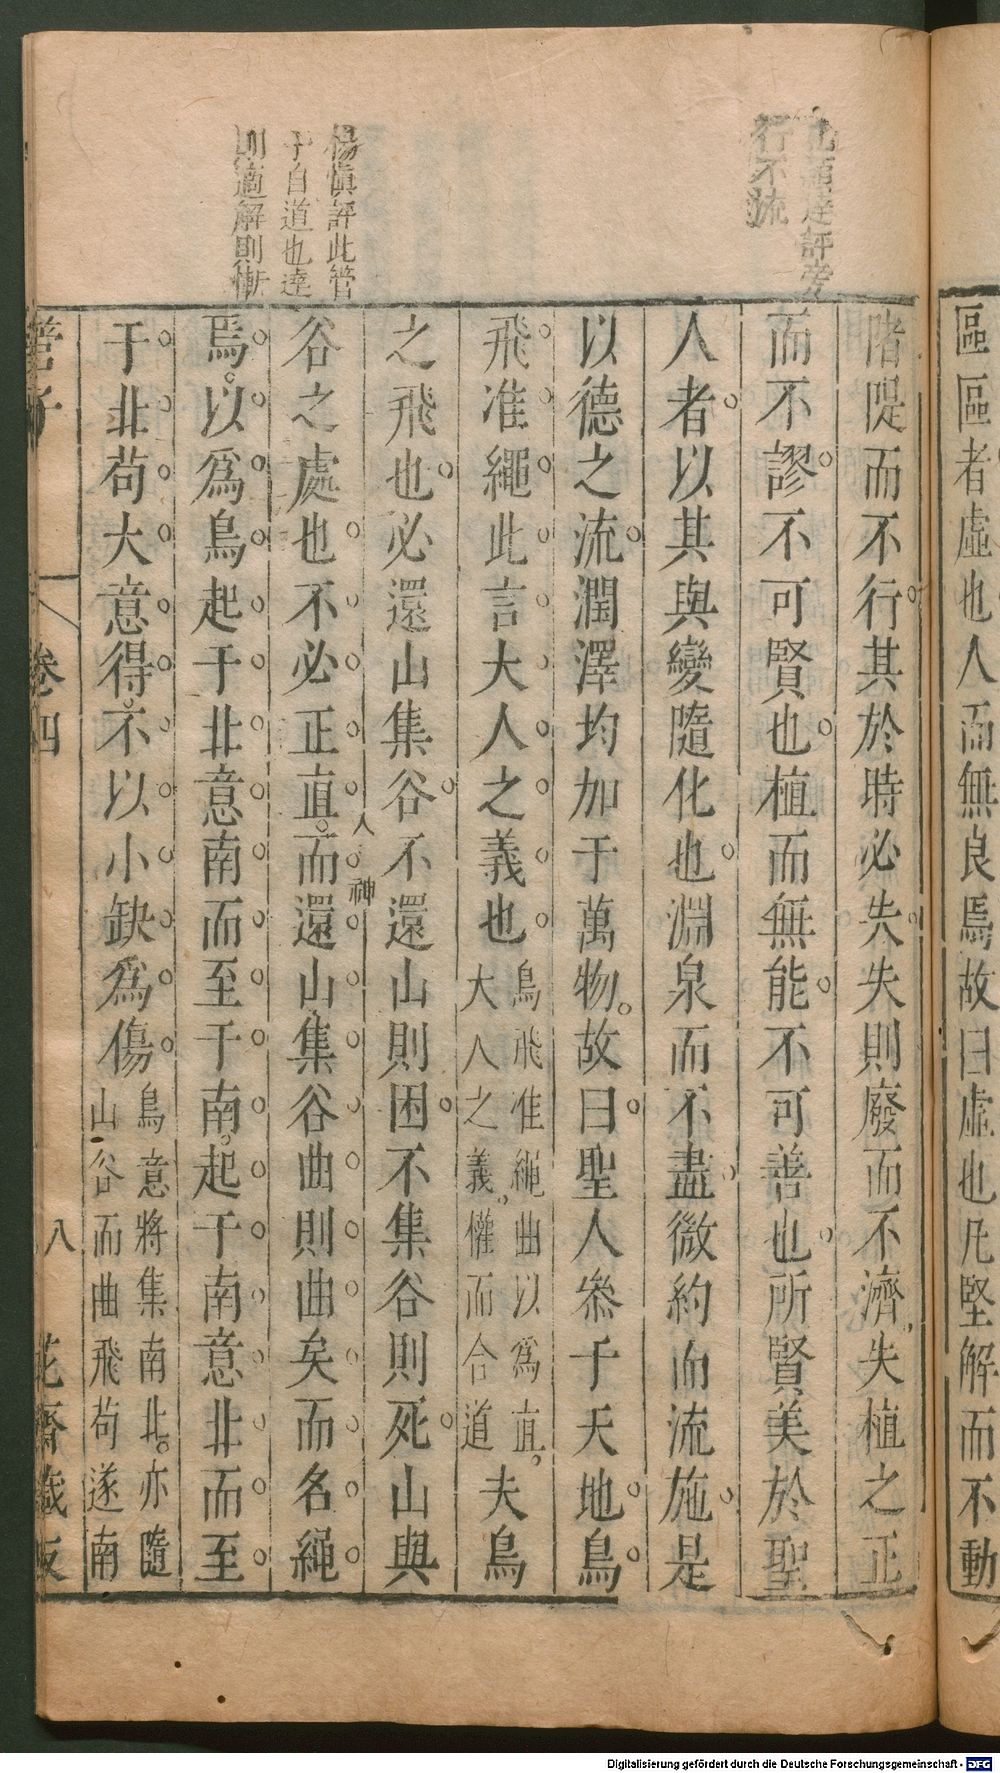 區區者虛也人而無良焉故曰虛也凡堅解而不動
階隄而不行其於時必失失則廢而不濟失植之正
而不謬不可賢也植而無能不可善也所賢美於聖
人者以其與變隨化也淵泉而不盡微約而流施是
以德之流潤澤均加于萬物故曰聖人參于天地鳥
飛准繩此言大人之義也
鳥飛准繩曲以爲直
大人之義權而合道
夫鳥
之飛也必還山集谷不還山則困不集谷則死山與
谷之處也不必正直而還山集谷曲則曲矣而名繩
人
神
焉以爲鳥起于北意南而至于南起于南意北而至
于北苟大意得不以小缺爲傷
鳥意將集南北亦隨
山谷而曲飛苟遂南
達評旁
行不流
楊慎評此管
子自道也達
則適解則慚
管子
卷四
八
花齋藏板
Digitalisierung gefördert durch die Deutsche Forschungsgemeinschaft - DFG